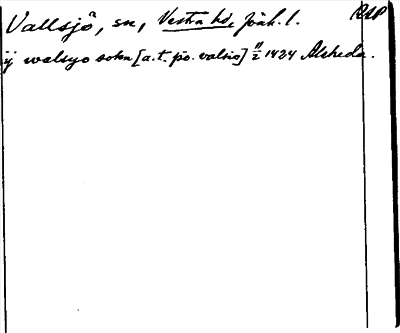 Vallsjö, sn, Västra hd, Jönk. l. RAP
ij walsyo sokn [a.t. på. valsio] 11/2 1424 Alsheda.